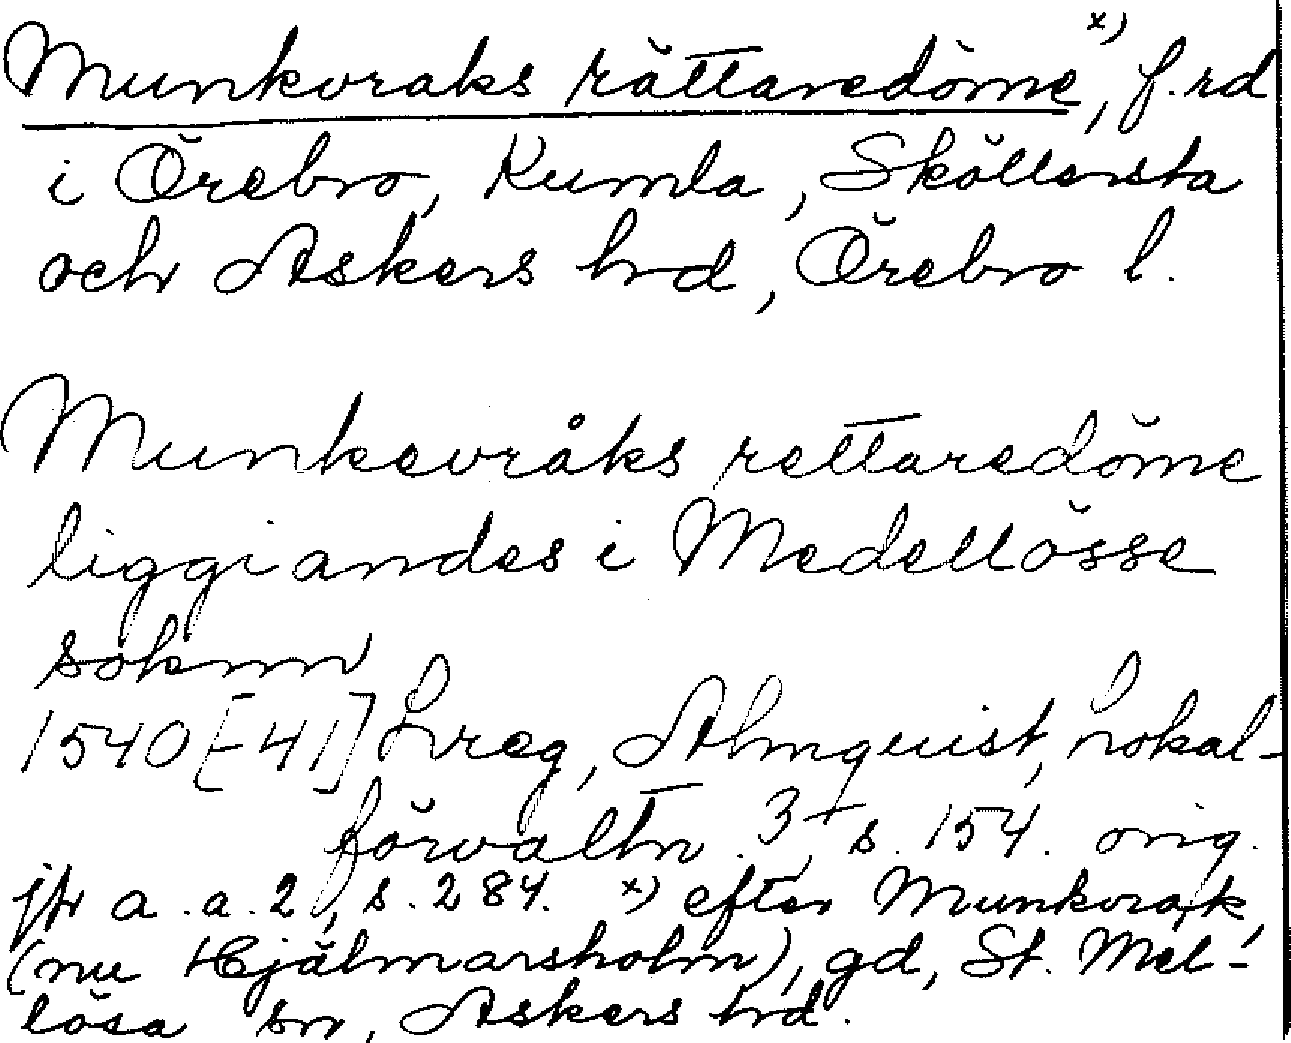 Munkvraks rättaredöme x), f.rd
i Örebro, Kumla, Sköllersta
och Askers hrd, Örebro l.
Munkevråks rettaredöme
liggiandes i Medellösse
soknn
1540[-41] Lreg, Almquist, Lokal-
förvaltn. 3, s. 154. orig.
jfr a.a. 2, s. 284. x) efter Munkvrak,
(nu Hjälmarsholm), gd, St. Mel-
lösa sn, Askers hrd.